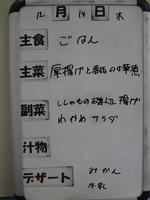 12月14日 木
主食 ごはん
主菜 厚揚げと豚肉の味噌煮
副菜 ししゃもの磯辺揚げ
わかめサラダ
汁物
デザート みかん
牛乳